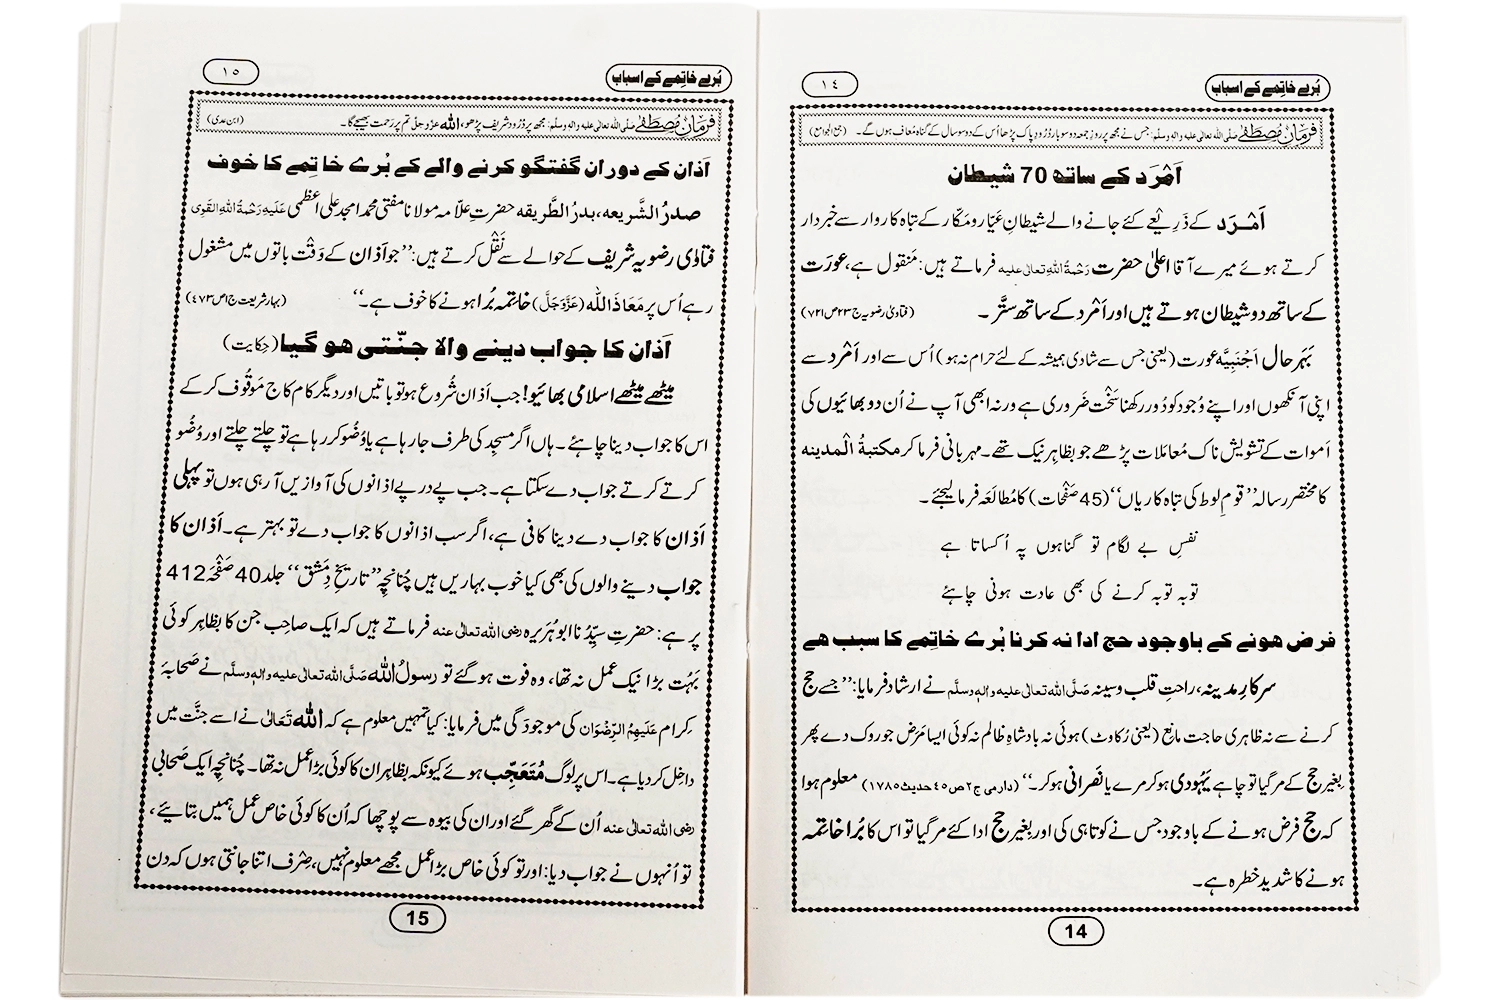 بُرے خاتِمے کے اسباب
١٤
فرمانِ مصطَفٰے صلی اللہ تعالیٰ علیہ والہ وسلم: جس نے مجھ پر روزِ جمعہ دو سو بار دُرُودِ پاک پڑھا اُس کے دو سو سال کے گناہ مُعاف ہوں گے۔ (جمع الجوامع)
اَمْرَد کے ساتھ 70 شیطان
اَمْرَد کے ذَرِیعے کئے جانے والے شیطانِ عَیّار و مکّار کے تباہ کار وار سے خبردار
کرتے ہوئے میرے آقا اعلیٰ حضرت رَحْمۃُ اللہِ تعالیٰ علیہ فرماتے ہیں: مَنقول ہے، عورَت
کے ساتھ دو شیطان ہوتے ہیں اور اَمْرد کے ساتھ ستَّر۔ (فتاویٰ رضویہ ج۲۳ص۷۲۱)
بَہَرحال اَجْنَبِیَّہ عورت (یعنی جس سے شادی ہمیشہ کے لئے حرام نہ ہو) اُس سے اور اَمْرَد سے
اپنی آنکھوں اور اپنے وُجود کو دُور رکھنا سَخْت ضَروری ہے ورنہ ابھی آپ نے اُن دو بھائیوں کی
اَموات کے تشویش ناک مُعامَلات پڑھے جو بظاہِر نیک تھے۔ مہربانی فرما کر مکتبۃُ الْمدینہ
کا مختصر رسالہ ’’قومِ لوط کی تباہ کاریاں‘‘ (45 صَفْحات) کا مُطالَعَہ فرما لیجئے۔
نفسِ بے لگام تو گناہوں پہ اُکساتا ہے
توبہ توبہ کرنے کی بھی عادت ہونی چاہئے
فرض ہونے کے باوجود حج ادا نہ کرنا بُرے خاتِمے کا سبب ہے
سرکارِ مدینہ، راحتِ قلب و سینہ صَلَّی اللہ تعالیٰ علیہ والہٖ وسلَّم نے ارشاد فرمایا: ’’جسے حج
کرنے سے نہ ظاہِری حاجت مانِع (یعنی رُکاوٹ) ہوئی نہ بادشاہِ ظالم نہ کوئی ایسا مَرَض جو روک دے پھر
بِغیر حج کے مر گیا تو چاہے یَہُودی ہو کر مرے یا نَصرانی ہو کر۔‘‘ (دارمی ج۲ص٤٥ حدیث١٧٨٥) معلوم ہوا
کہ حج فرض ہونے کے باوجود جس نے کوتاہی کی اور بِغیر حج ادا کئے مر گیا تو اس کا بُرا خاتمہ
ہونے کا شدید خطرہ ہے۔
14
بُرے خاتِمے کے اسباب
١٥
فرمانِ مصطَفٰے صلی اللہ تعالیٰ علیہ والہ وسلم: مجھ پر دُرُود شریف پڑھو، اللہ عزوجل تم پر رَحمت بھیجے گا۔ (ابن عدی)
اَذان کے دوران گفتگو کرنے والے کے بُرے خاتِمے کا خوف
صدرُ الشَّریعہ، بدرُ الطَّریقہ حضرتِ علّامہ مولانا مفتی محمد امجد علی اعظمی عَلَیْہِ رَحْمَۃُ اللہِ القَوِی
فتاوٰی رضویہ شریف کے حوالے سے نَقْل کرتے ہیں: ’’جو اَذان کے وَقْت باتوں میں مشغول
رہے اُس پر مَعَاذَاللہ (عَزَّوَجَلَّ) خاتمہ بُرا ہونے کا خوف ہے۔‘‘ (بہارِ شریعت ج۱ص۴۷۳)
اَذان کا جواب دینے والا جنّتی ہو گیا (حِکایت)
میٹھے میٹھے اسلامی بھائیو! جب اَذان شُروع ہو تو باتیں اور دیگر کام کاج مَوقُوف کر کے
اس کا جواب دینا چاہئے۔ ہاں اگر مسجِد کی طرف جا رہا ہے یا وُضُو کر رہا ہے تو چلتے چلتے اور وُضُو
کرتے کرتے جواب دے سکتا ہے۔ جب پے در پے اذانوں کی آوازیں آ رہی ہوں تو پہلی
اَذان کا جواب دے دینا کافی ہے، اگر سب اذانوں کا جواب دے تو بہتر ہے۔ اَذان کا
جواب دینے والوں کی بھی کیا خوب بہاریں ہیں چُنانچِہ ’’تاریخِ دِمَشق‘‘ جلد 40 صَفْحَہ 412
پر ہے: حضرتِ سیِّدُنا ابوہُریرہ رضی اللہ تعالیٰ عنہ فرماتے ہیں کہ ایک صاحِب جن کا بظاہِر کوئی
بَہُت بڑا نیک عمل نہ تھا، وہ فوت ہو گئے تو رسولُ اللہ صَلَّی اللہ تعالیٰ علیہ والہٖ وسلَّم نے صَحابۂ
کِرام عَلَیہِمُ الرِّضْوَان کی موجودَگی میں فرمایا: کیا تمہیں معلوم ہے کہ اللہ تَعَالٰی نے اسے جنَّت میں
داخِل کر دیا ہے۔ اس پر لوگ مُتَعَجِّب ہوئے کیونکہ بظاہر ان کا کوئی بڑا عمل نہ تھا۔ چُنانچِہ ایک صَحابی
رضی اللہ تعالیٰ عنہ اُن کے گھر گئے اور ان کی بیوہ سے پوچھا کہ اُن کا کوئی خاص عمل ہمیں بتائیے،
تو اُنہوں نے جواب دیا: اور تو کوئی خاص بڑا عمل مجھے معلوم نہیں، صِرْف اتنا جانتی ہوں کہ دن
15